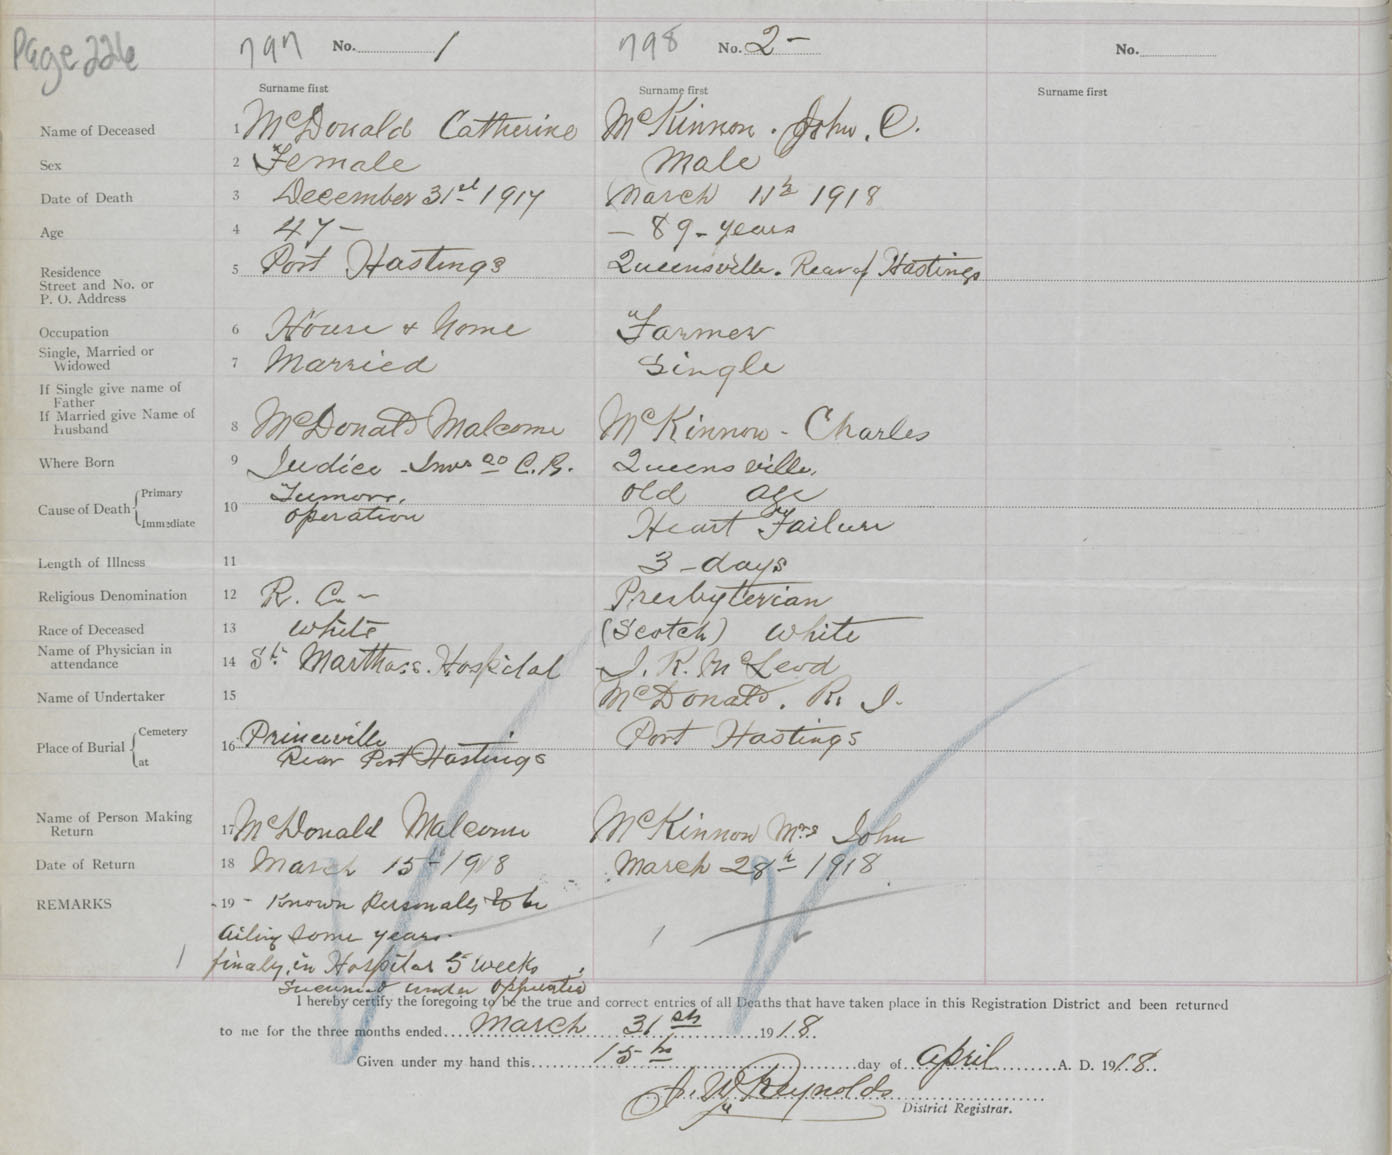 Page 226
797 No. 1 798 No. 2- No.
Surname first Surname first Surname first
Name of Deceased 1 McDonald Catherine McKinnon. John. C.
Sex 2 Female Male
Date of Death 3 December 31st 1917 March 11th 1918
Age 4 47- - 89-years
Residence 5 Port Hastings Queensville. Rear of Hastings
Street and No. or
P. O. Address
Occupation 6 House & home Farmer
Single, Married or 7 Married Single
Widowed
If Single give name of
Father
If Married give Name of 8 McDonald Malcome McKinnon - Charles
Husband
Where Born 9 Judice Invs Co C.B. Queensville.
Cause of Death Primary 10 Tumore. old age
Immediate operation Heart Failure
Length of Illness 11 3-days
Religious Denomination 12 R. C. - Presbyterian
Race of Deceased 13 White (Scotch) White
Name of Physician in 14 St. Marthas. Hospital J. K. McLeod
attendance
Name of Undertaker 15 McDonald. R. J.
Place of Burial Cemetery 16 Princeville Port Hastings
at Rear Port Hastings
Name of Person Making 17 McDonald Malcome McKinnon Mrs John
Return
Date of Return 18 March 15th 1918 March 28th 1918
REMARKS 19 - Known Personally to be
Ailing some years.
finaly, in Hospital 5 weeks
under
I hereby certify the foregoing to be the true and correct entries of all Deaths that have taken place in this Registration District and been returned
to me for the three months ended March 31st 1918.
Given under my hand this 15th day of April A. D. 1918.
J. W. Reynolds
District Registrar.